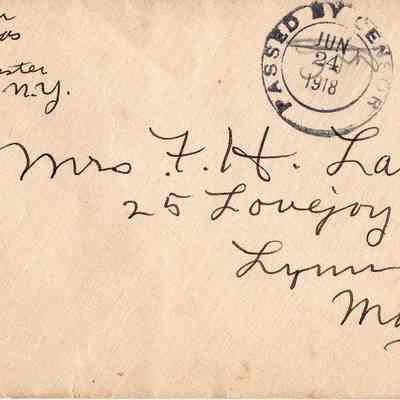 N.Y.
PASSED BY CENSOR
JUN
24
1918
Mrs F. H. La
25 Lovejoy
Lynn
Ma